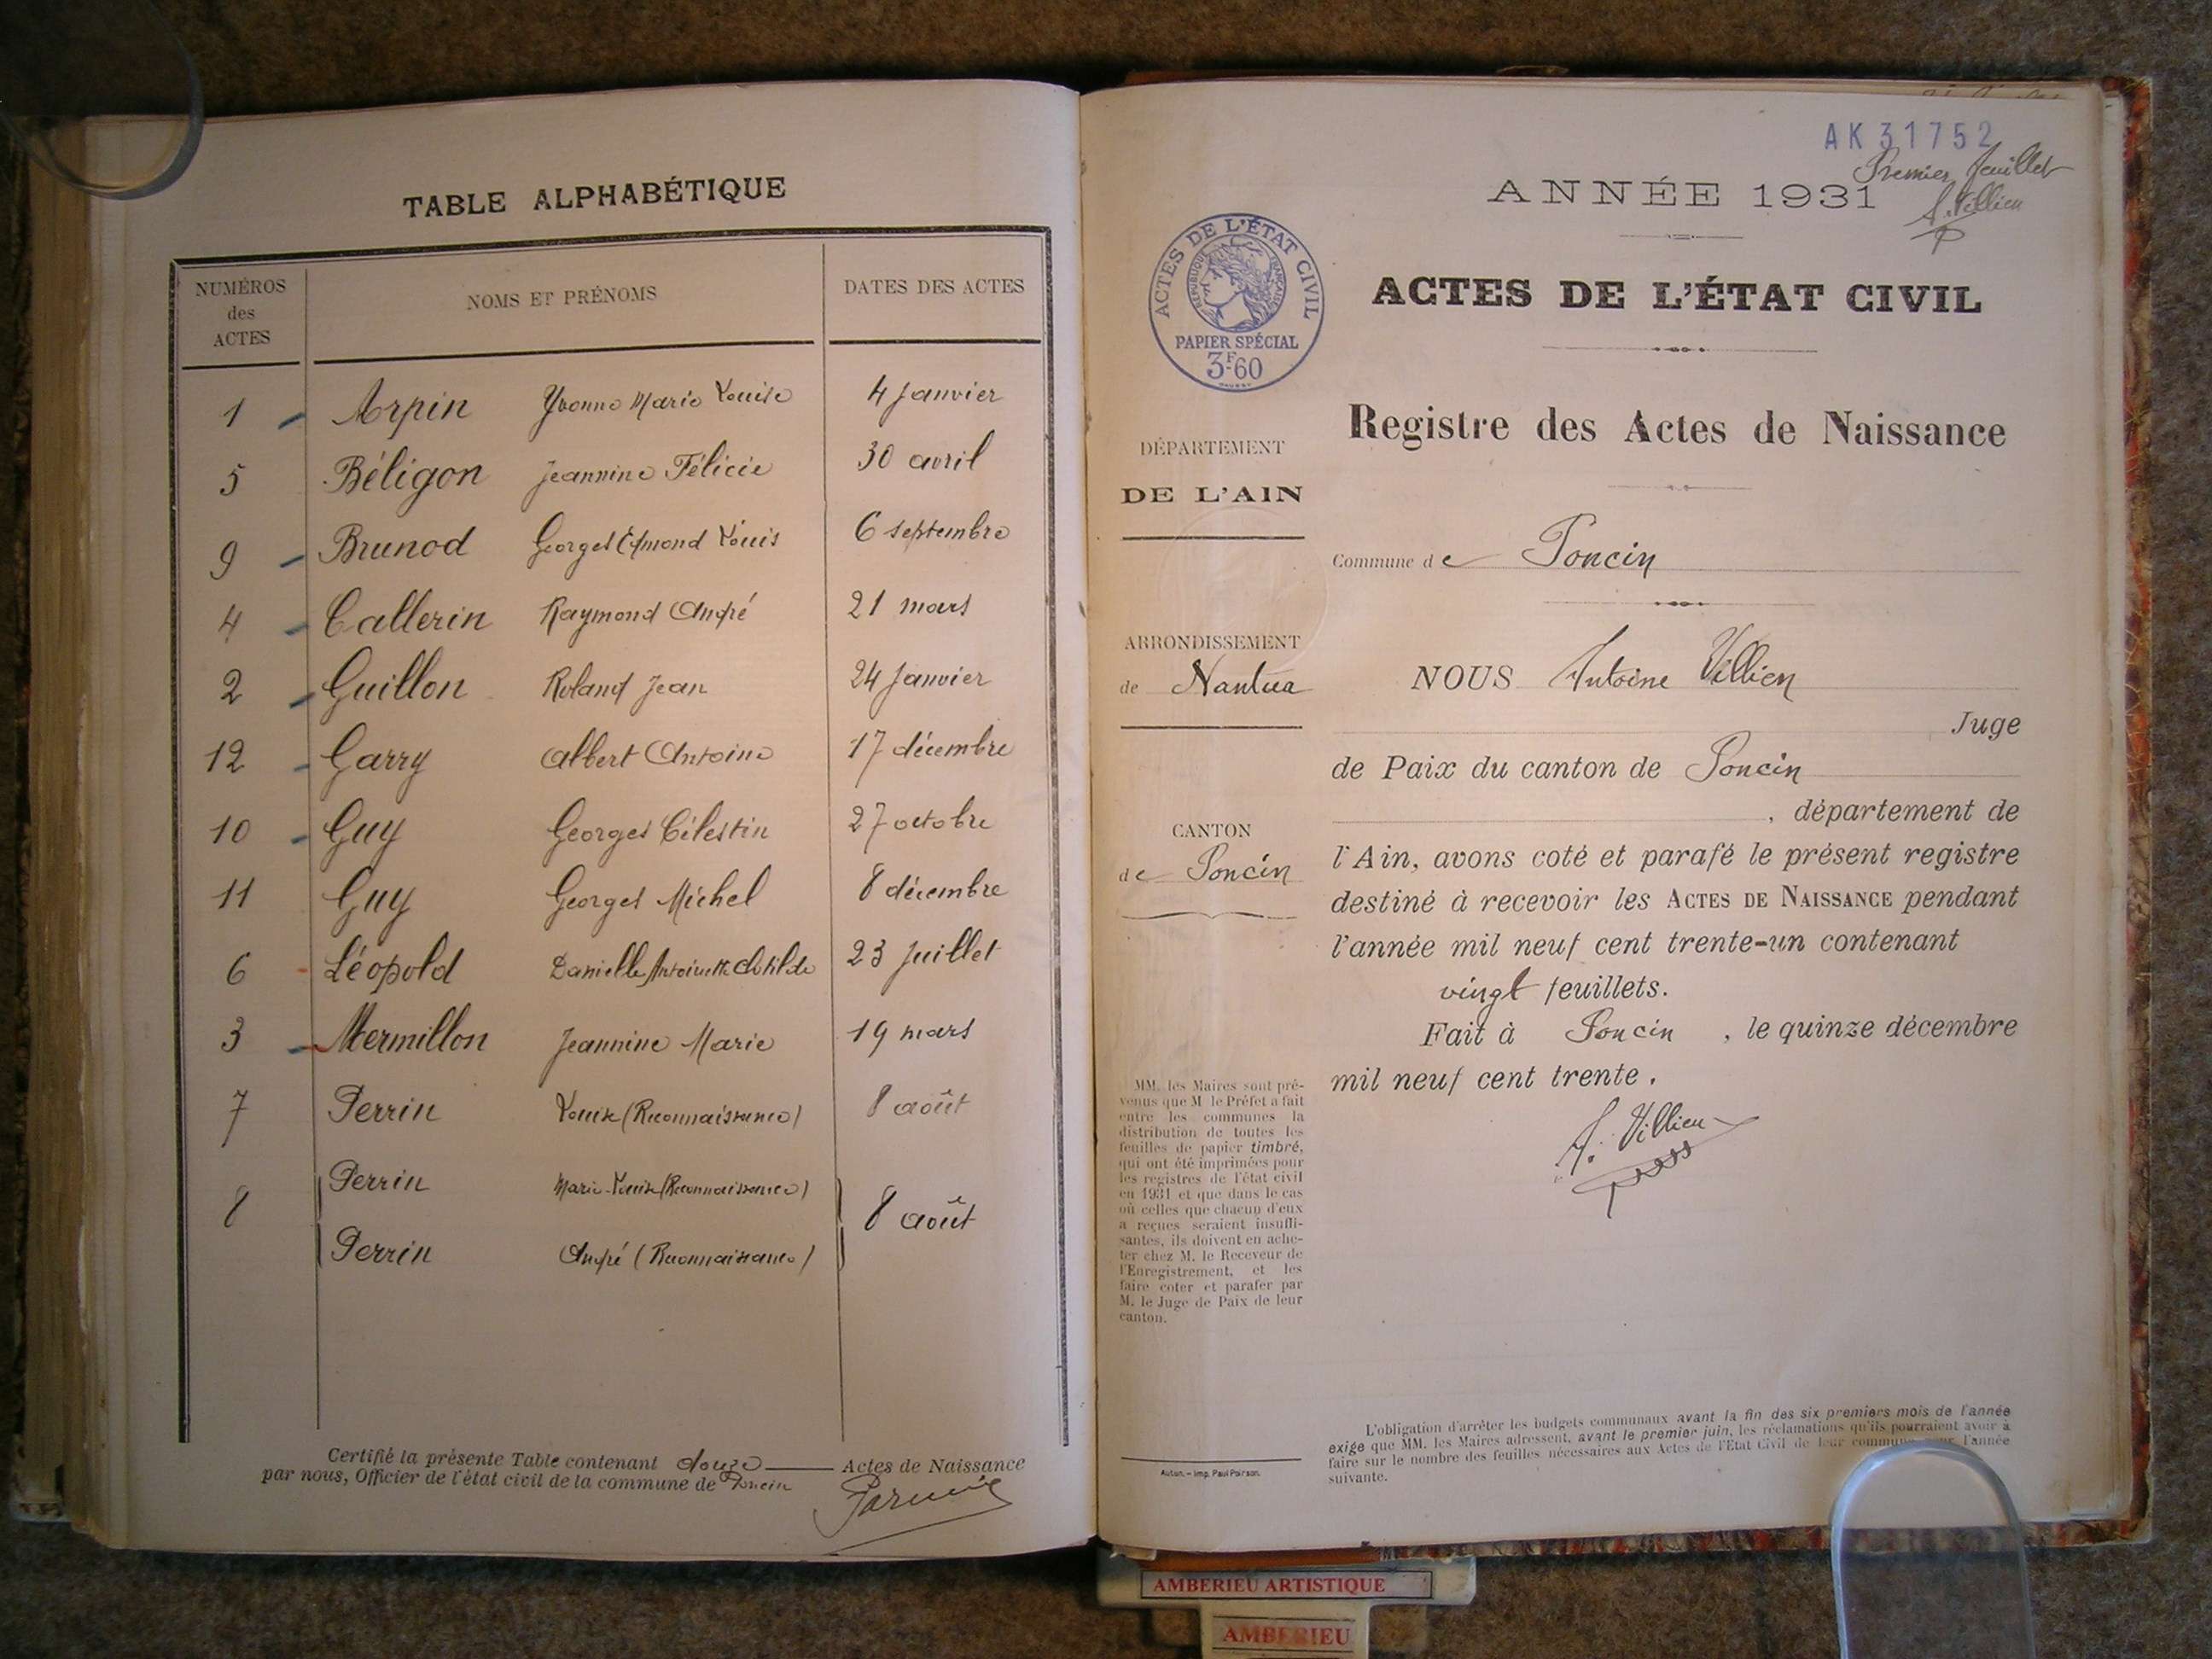 TABLE ALPHABÉTIQUE
NUMÉROS des ACTES NOMS ET PRÉNOMS DATES DES ACTES
1 Arpin Yvonne Marie Louise 4 Janvier
5 Béligon Jeannine Félicie 30 avril
9 Brunod Georges Edmond Louis 6 septembre
4 Callerin Raymond André 21 mars
2 Guillon Roland Jean 24 Janvier
12 Garry Albert Antoine 17 décembre
10 Guy Georges Célestin 27 octobre
11 Guy Georges Michel 8 décembre
6 Léopold Danielle Antoinette Clotilde 23 Juillet
3 Mermillon Jeannine Marie 19 mars
7 Perrin Louise (Reconnaissance) 8 août
Perrin Marie-Louise (Reconnaissance)
8 8 août
Perrin André (Reconnaissance)
Certifié la présente Table contenant douze Actes de Naissance
par nous, Officier de l'état civil de la commune de Poncin
AK 31752
Premier feuillet
ANNÉE 1931
A. Villien
ACTES DE L'ÉTAT CIVIL
RÉPUBLIQUE FRANÇAISE
PAPIER SPÉCIAL
3F60
ACTES DE L'ÉTAT CIVIL
Registre des Actes de Naissance
DÉPARTEMENT
DE L'AIN
Commune de Poncin
ARRONDISSEMENT
de Nantua
CANTON
de Poncin
NOUS Antoine Villien
Juge
de Paix du canton de Poncin
, département de
l'Ain, avons coté et parafé le présent registre
destiné à recevoir les ACTES DE NAISSANCE pendant
l'année mil neuf cent trente-un contenant
vingt feuillets.
Fait à Poncin, le quinze décembre
mil neuf cent trente.
A. Villien
MM. les Maires sont pré-
venus que M. le Préfet a fait
entre les communes la
distribution de toutes les
feuilles de papier timbré,
qui ont été imprimées pour
les registres de l'état civil
en 1931 et que dans le cas
où celles que chacun d'eux
a reçues seraient insuffi-
santes, ils doivent en ache-
ter chez M. le Receveur de
l'Enregistrement, et les
faire coter et parafer par
M. le Juge de Paix de leur
canton.
Autun. - Imp. Paul Poirson.
L'obligation d'arrêter les budgets communaux avant la fin des six premiers mois de l'année
exige que MM. les Maires adressent, avant le premier juin, les réclamations qu'ils pourraient avoir à
faire sur le nombre des feuilles nécessaires aux Actes de l'Etat Civil de leur commune pour l'année
suivante.
AMBERIEU ARTISTIQUE
AMBERIEU